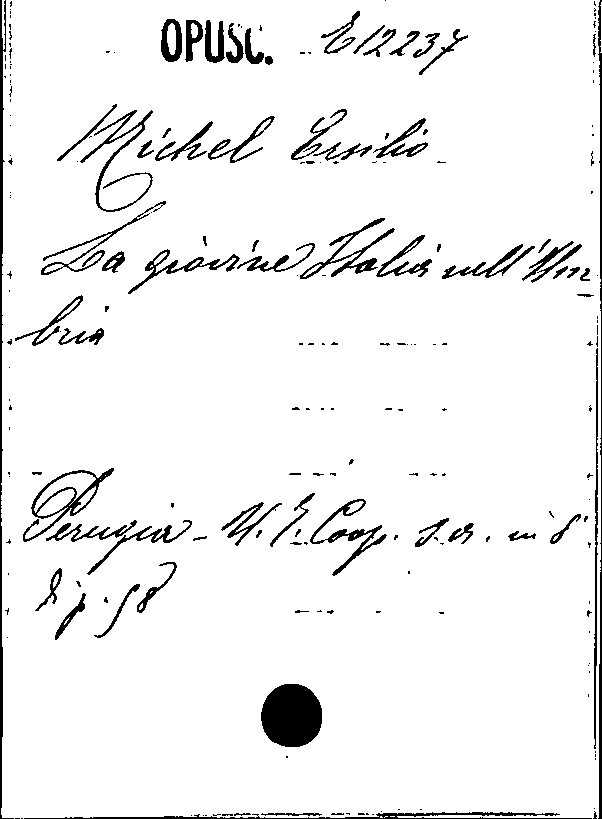 OPUSC. E12237
Michel Ersilio
La giovine Italia nell'Um-
bria
Perugia - U. T. Coop. s.a. in 8°
di p. 58